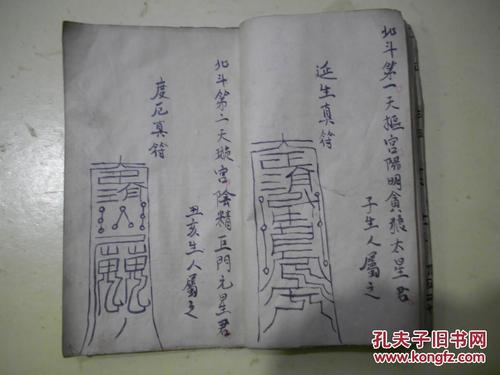 北斗第一天樞宮陽明貪狼太星君
子生人屬之
延生真符
北斗第二天璇宮陰精巨門元星君
丑亥生人屬之
度厄真符
孔夫子旧书网
www.kongfz.com